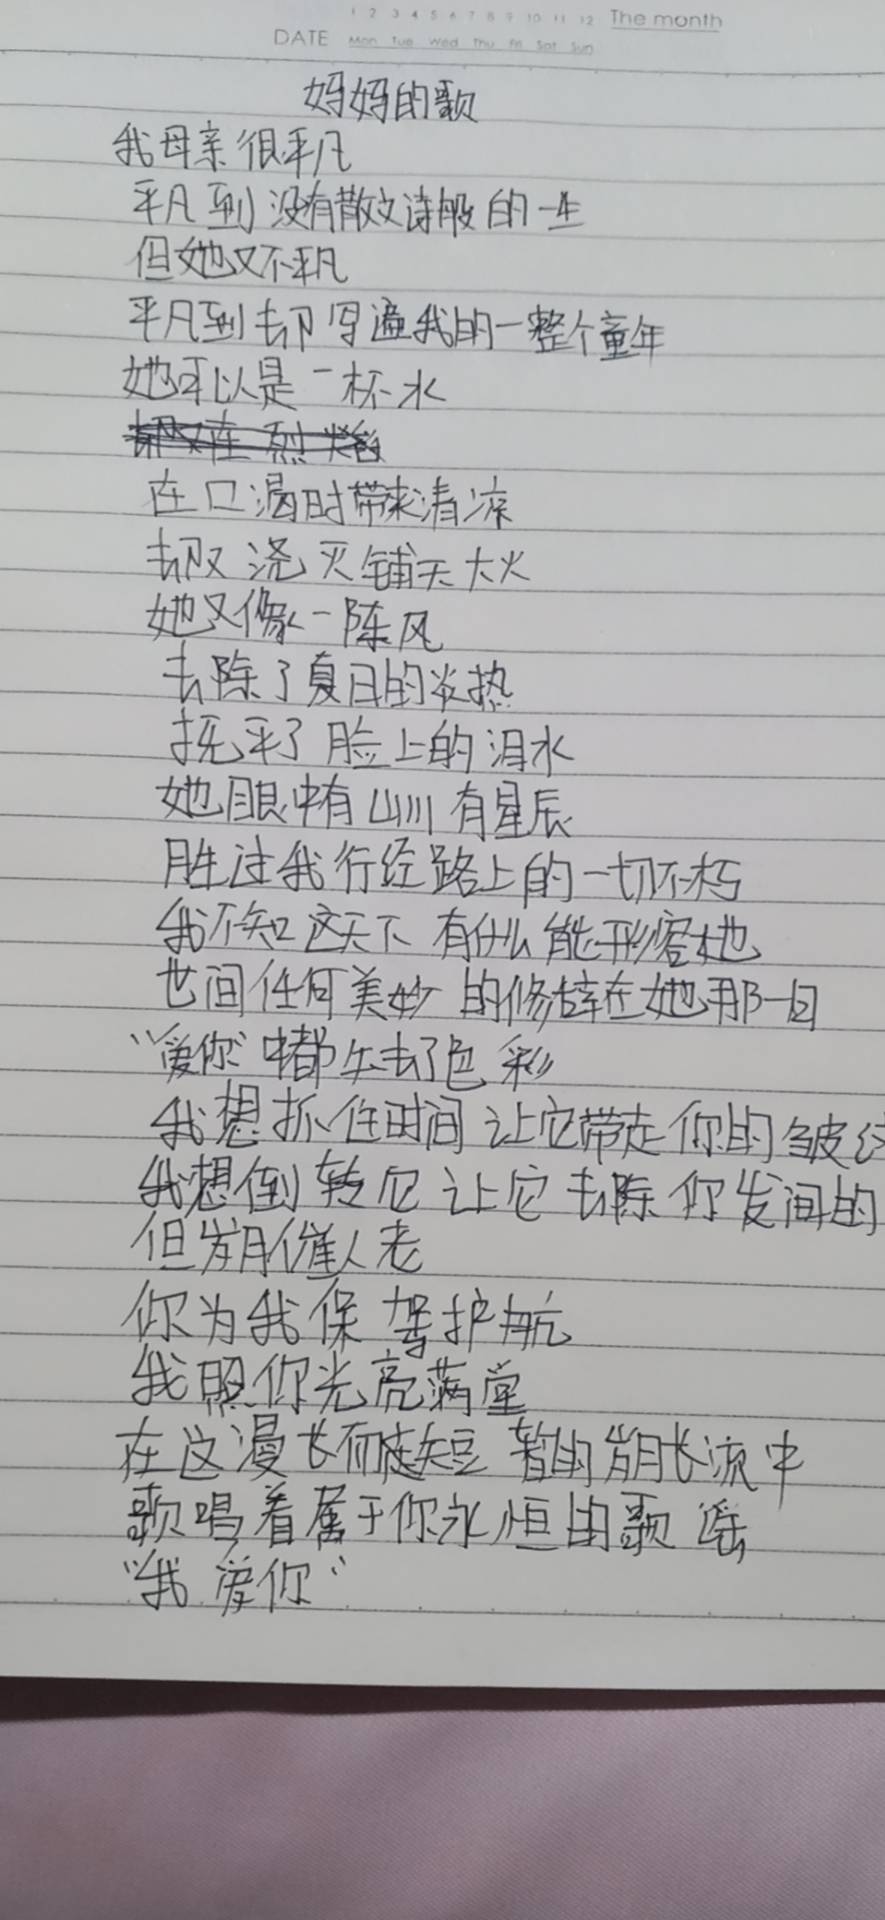 1 2 3 4 5 6 7 8 9 10 11 12 The month
DATE Mon Tue Wed Thu Fri Sat Sun
妈妈的歌
我母亲很平凡
平凡到没有散文诗般的一生
但她又不平凡
平凡到却写遍我的一整个童年
她可以是一杯水
在口渴时带来清凉
却又浇灭铺天大火
她又像一陈风
去除了夏日的炎热
抚平了脸上的泪水
她眼中有山川有星辰
胜过我行经路上的一切不朽
我不知这天下有什么能形容她
世间任何美妙的修辞在她那一句
“爱你”中都失去了色彩
我想抓住时间让它带走你的皱纹
我想倒转它让它去除你发间的
但岁月催人老
你为我保驾护航
我照你光亮满堂
在这漫长而短暂的岁月长流中
歌唱着属于你永恒的歌谣
“我爱你”